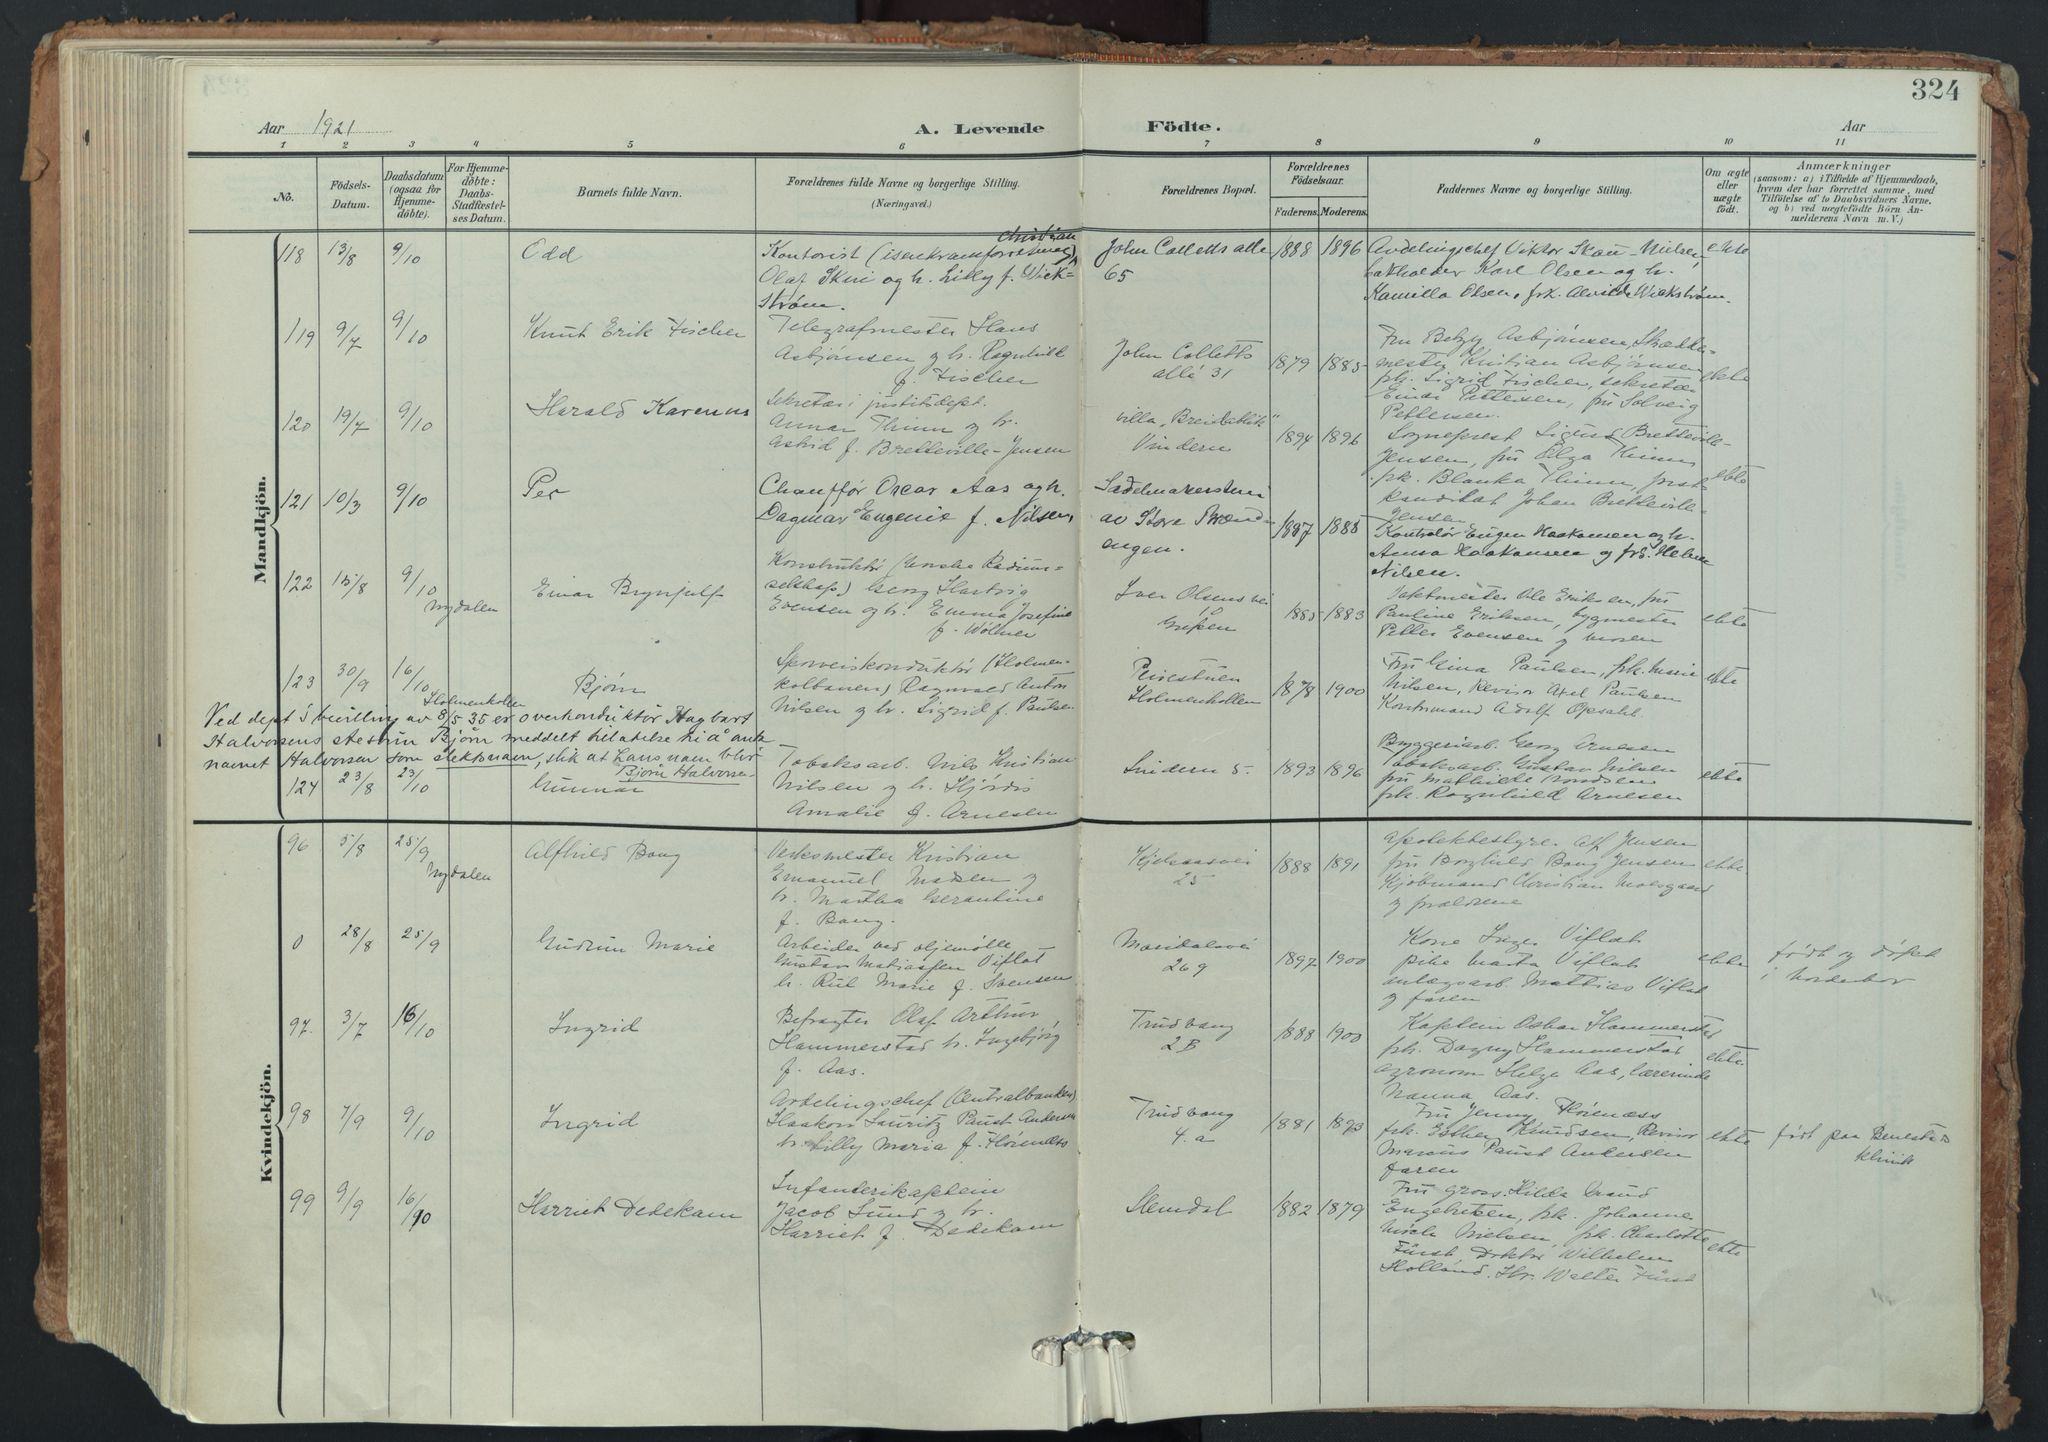 324
Aar 1921
A. Levende Födte.
Aar
1 2 3 4 5 6 7 8 9 10 11
No.
Födsels-
Datum.
Daabsdatum
(ogsaa for
Hjemme-
döbte).
For Hjemme-
döbte:
Daabs-
Stadfæstel-
ses Datum.
Barnets fulde Navn.
Forældrenes fulde Navne og borgerlige Stilling.
(Næringsvei.)
Forældrenes Bopæl.
Forældrenes
Födselsaar.
Faderens. Moderens.
Faddernes Navne og borgerlige Stilling.
Om ægte
eller
uægte
födt.
Anmærkninger
(saasom: a) i Tilfælde af Hjemmedaab,
hvem der har forrettet samme, med
Tilföielse af to Daabsvidners Navne,
og b) ved uægtefödte Börn An-
melderens Navn m. V.)
Mandkjön.
118 13/8 9/10 Odd
Kontorist (isenkramforretning) Christian
Olaf Skui og h. Lilly f. Wick-
strøm.
John Colletts alle
65
1888 1896
Avdelingschef Viktor Skau-Nielsen
Karl Olsen og h.
Kamilla Olsen, frk. Alvilde Wickstrøm.
ekte
119 9/7 9/10 Knut Erik Fischer
Telegrafmester Hans
Asbjønsen og h. Ragnhild
f. Fischer
John Colletts
allé 31
1879 1885
Fru Betzy Asbjønsen, Skrædder-
mester Kristian Asbjørnsen
frk. Sigrid Fischer, sekretær
Einar Pettersen, fru Solveig
Pettersen.
ekte
120 19/7 9/10 Harald Karenus
Sekretær i justitsdept.
Annar Thinn og h.
Astrid f. Bretteville-Jensen
villa "Breidablik"
Vindern
1894 1896
Sogneprest Sigurd Bretteville-
Jensen, fru Elga Thinn
frk. Blanka Thinn, prest.
kandidat Johan Bretteville-
Jensen
ekte
121 10/3 9/10 Per
Chauffør Oscar Aas og h.
Dagmar Eugenie f. Nilsen,
Sadelmakerstuen
av Store Brænd-
engen.
1887 1888
Kontrolør Eugen Haakonsen og h.
Anna Haakonsen og frk. Helene
Nilsen.
122 15/8 9/10
Nydalen
Einar Brynjulf
Konstruktør (norske Radium-
selskap) Georg Hartvig
Evensen og h. Emma Josefine
f. Wølner
Iver Olsens vei
Grefsen
1885 1883
Taktmester Ole Eriksen, fru
Pauline Eriksen, bygmester
Petter Evensen og moren
ekte
123 30/9 16/10
Holmenkollen
Bjørn
Sporveiskonduktør (Holmen-
kolbanen) Ragnvald Anton
Nilsen og h. Sigrid f. Paulsen
Peisestuen
Holmenkollen
1878 1900
Fru Gina Paulsen, frk. Marie
Nilsen, Revisor Axel Paulsen
Kontormand Adolf Opsahl.
ekte
Ved dept's bevilling av 8/5 35 er overkonduktør Hagbart
Halvorsens stesønn Bjørn meddelt tilatelse til å anta
navnet Halvorsen som slektsnavn, slik at hans navn blir
Bjørn Halvorsen
124 23/8 23/10 Gunnar
Tobaksarb. Nils Kristian
Nilsen og h. Hjørdis
Amalie f. Arnesen
Smidern 5.
1893 1896
Bryggeriarb. Georg Arnesen
tobaksarb. Gustav Nilsen
fru Mathilde
frk. Ragnhild Arnesen
ekte
Kvindekjön.
96 5/8 25/9
Nydalen
Alfhild Bang
Verksmester Kristian
Emanuel Madsen og
h. Martha Gerantine
f. Bang.
Kjelsaasvei
25
1888 1891
Apotekbestyrer Alf Jensen
fru Borghild Bang Jensen
Kjøbmand Christian Molsgaard
og forældrene
ekte
0 28/8 25/9 Gudrun Marie
Arbeider ved oljemølle
Gustav Matiassen Viflat
h. Rut Marie f. Svensen
Maridalsvei
269
1897 1900
Kone Inga Viflat
pike Marta Viflat
anlægsarb. Mattias Viflat
og faren
ekte
født og døpt
i Norderhov
97. 3/7 16/10 Ingrid
Befragter Olaf Arthur
Hammerstad h. Ingebjørg
f. Aas.
Trudvang
2B
1888 1900
Kaptein Oskar Hammerstad
frk. Dagny Hammerstad
agronom Helge Aas, lærerinde
Nanna Aas.
ekte
98 7/9 9/10 Ingrid
Avdelingschef (Centralbanken)
Haakon Lauritz Paust Andersen
h. Lilly Maria f. Høienæss
Trudvang
4. a
1881 1893
Fru Jenny Høienæss
frk. Esther Knudsen, Revisor
Marius Paust Andersen
faren
ekte
født paa
klinik
99 9/9 16/10 Harriet Dedekam
Infanterikaptein
Jacob Lund og h.
Harriet f. Dedekam
Slemdal
1882 1879
Fru gross. Hilda
Engebretsen, frk. Johanne
Nielsen, frk. Charlotte
Fürst, Doktor Wilhelm
Holland. Hr. Walter Fürst
ekte